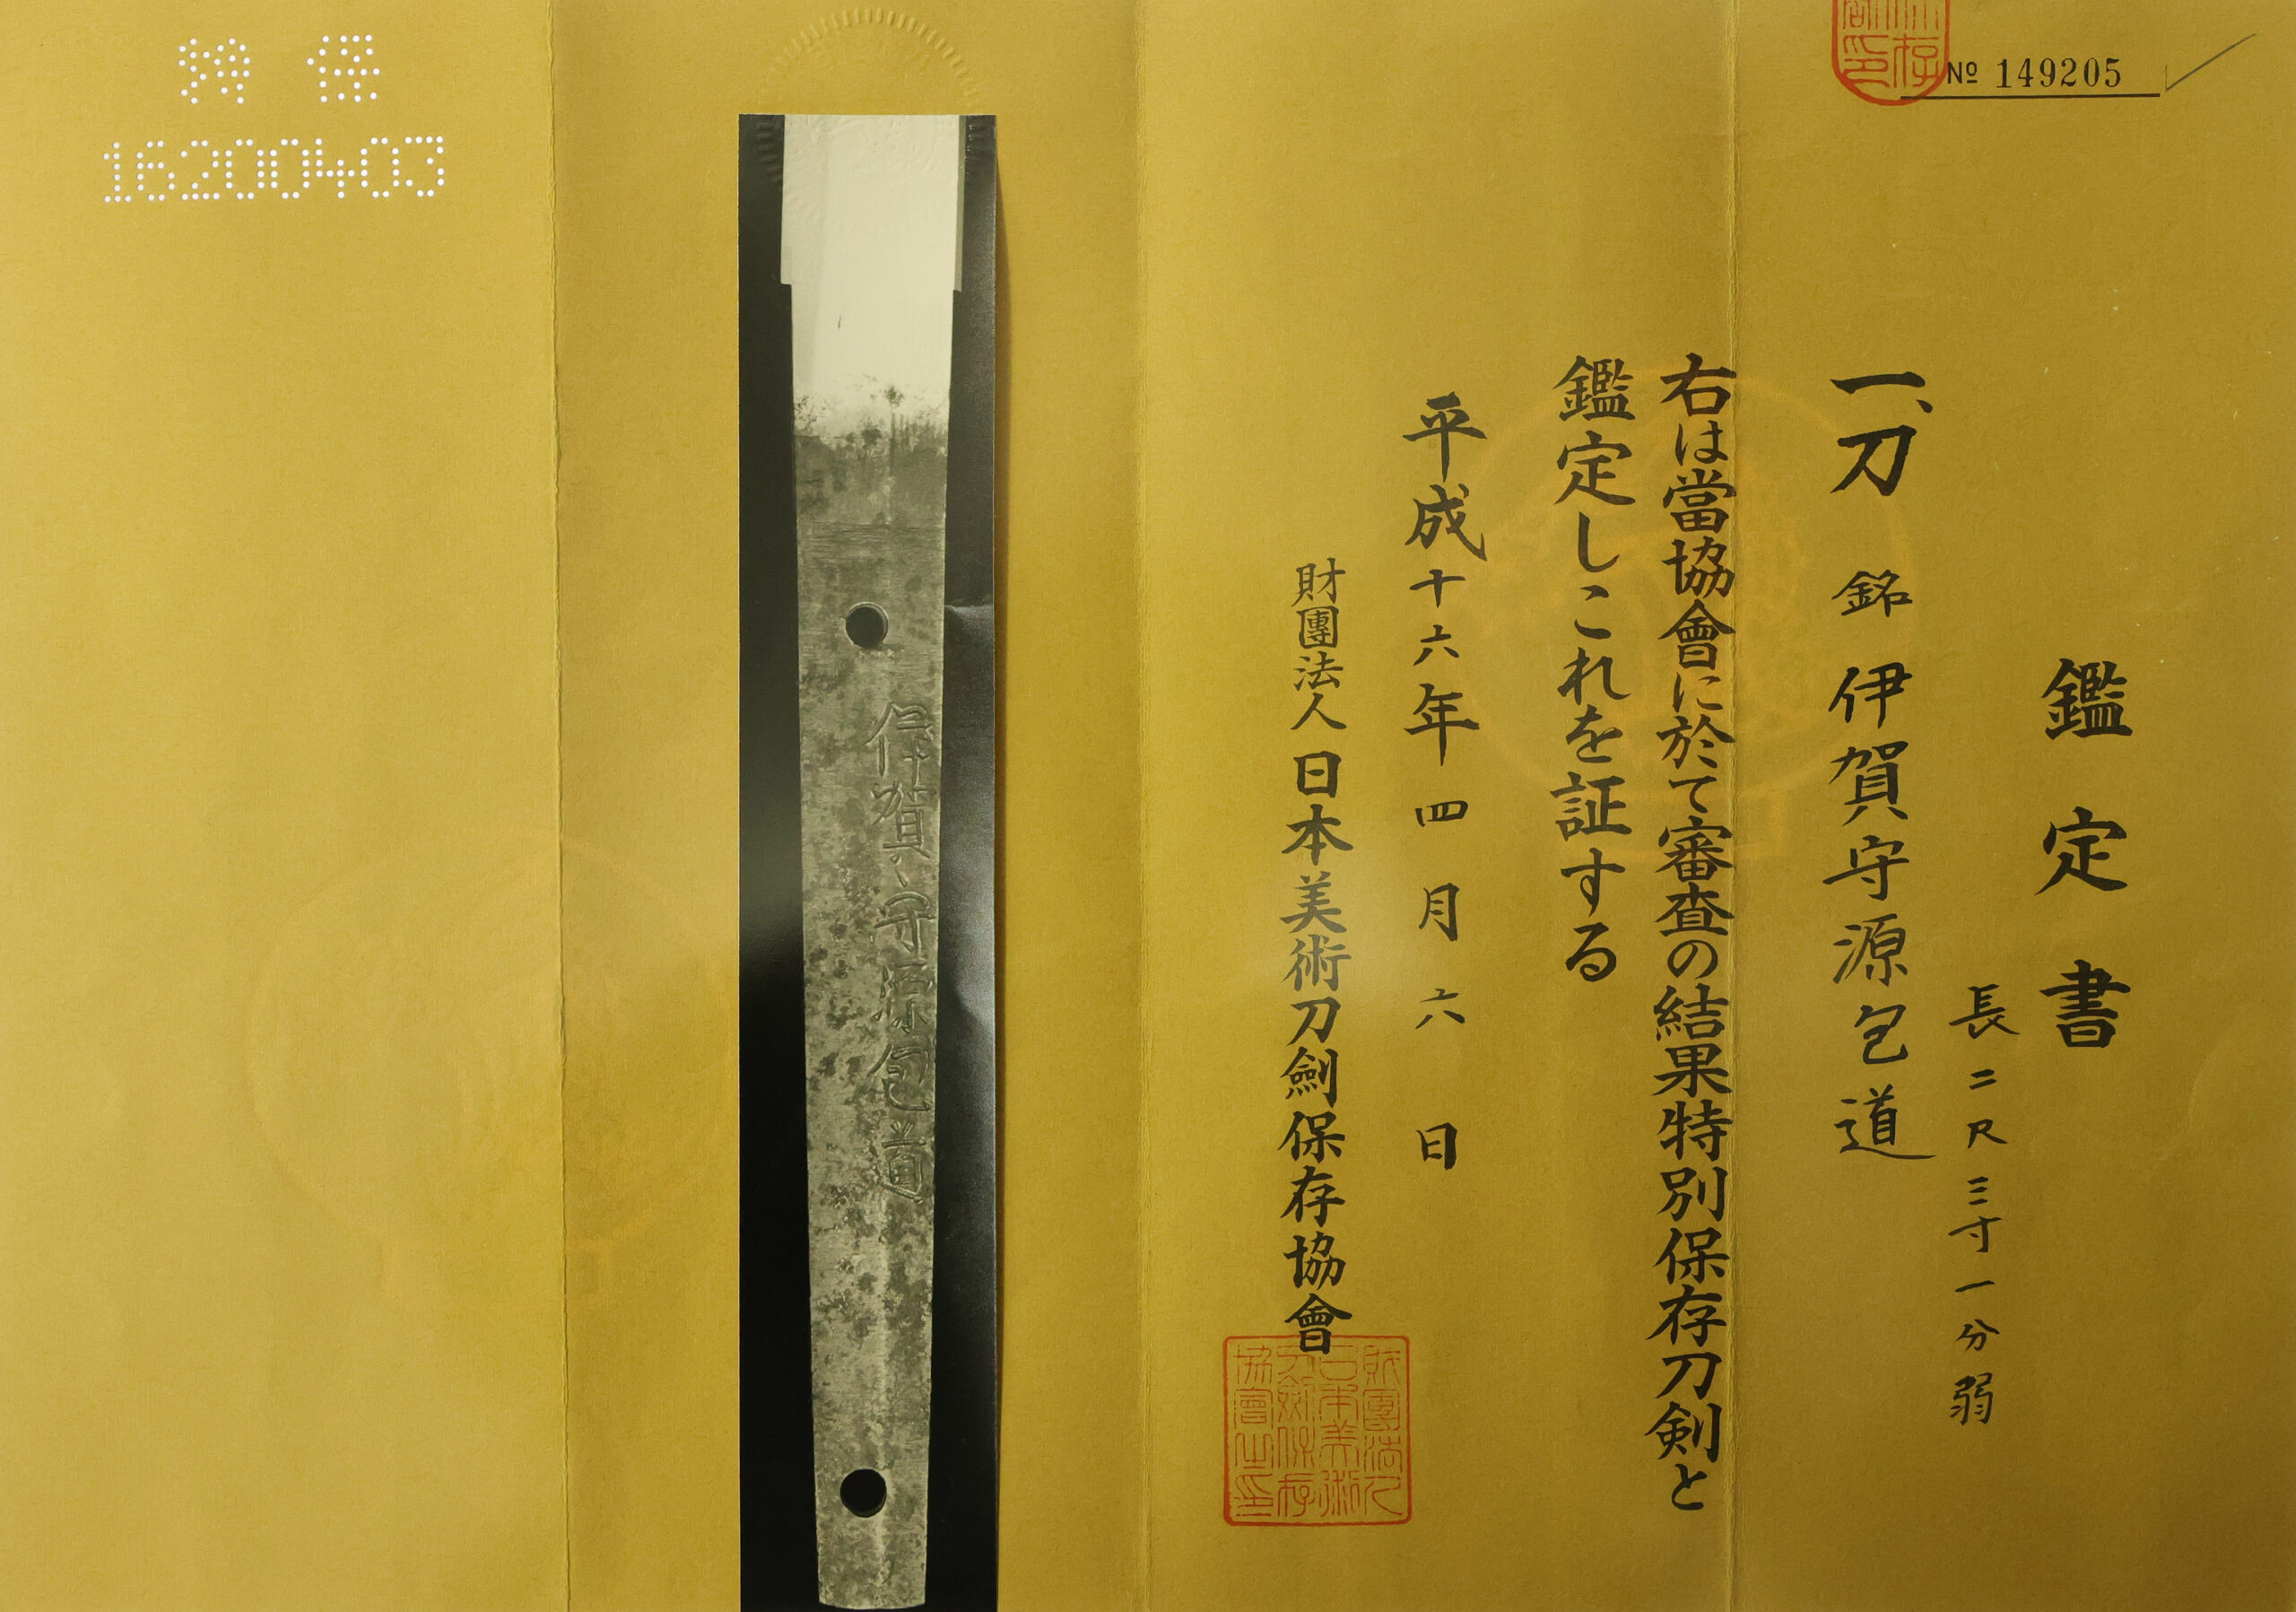 № 149205
鑑定書
長二尺三寸一分弱
一、刀 銘 伊賀守源包道
右は當協會に於て審査の結果特別保存刀剣と
鑑定しこれを証する
平成十六年四月六日
財團法人日本美術刀劍保存協會
財團法人
日本美術
刀劍保存
協會之印
伊賀守源包道
特保
16200403